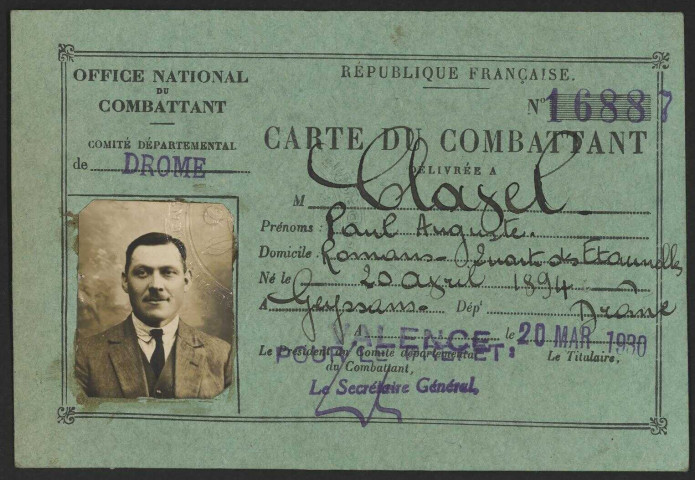 OFFICE NATIONAL
DU
COMBATTANT
COMITÉ DÉPARTEMENTAL
de DROME
RÉPUBLIQUE FRANÇAISE.
N° 16887
CARTE DU COMBATTANT
DÉLIVRÉE A
M Clazel
Prénoms : Paul Auguste.
Domicile : Romans - Quart. des
Né le 20 avril 1894
A Geyssans - Dépt Drome
A VALENCE le 20 MAR 1930
Le Président du Comité départemental
du Combattant,
Le Titulaire,
POUR LE ET:
Le Secrétaire Général,